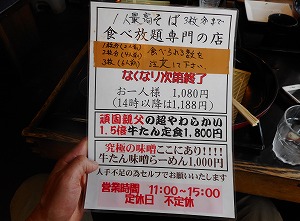 1人最高そば3枚弁まで
食べ放題専門の店
食べられる数を
注文して下さい。
なくなり次第終了
お一人様 1,080円
(14時以降は1,188円)
頑固親父の超やわらかい
1.5倍牛たん定食1,800円
究極の味噌ここにあり!!!!
牛たん味噌らーめん1,000円
人手不足の為セルフでお願いいたします
営業時間 11:00～15:00
定休日 不定休